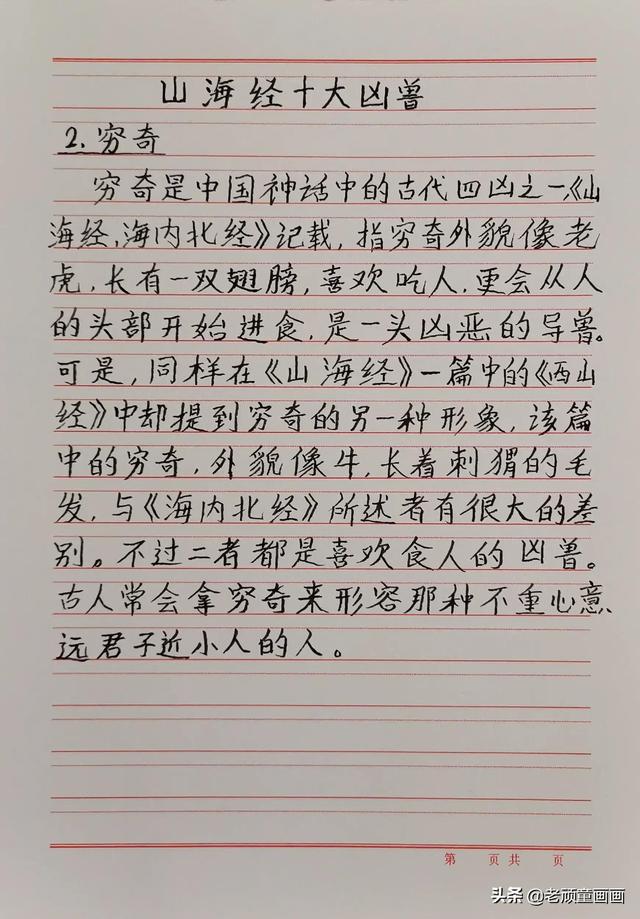 山海经十大凶兽
2.穷奇
穷奇是中国神话中的古代四凶之一《山
海经,海内北经》记载,指穷奇外貌像老
虎,长有一双翅膀,喜欢吃人,更会从人
的头部开始进食,是一头凶恶的导兽。
可是,同样在《山海经》一篇中的《西山
经》中却提到穷奇的另一种形象,该篇
中的穷奇,外貌像牛,长着刺猬的毛
发,与《海内北经》所述者有很大的差
别。不过二者都是喜欢食人的凶兽。
古人常会拿穷奇来形容那种不重心意、
远君子近小人的人。
第 页 共 页
头条 @老顽童画画